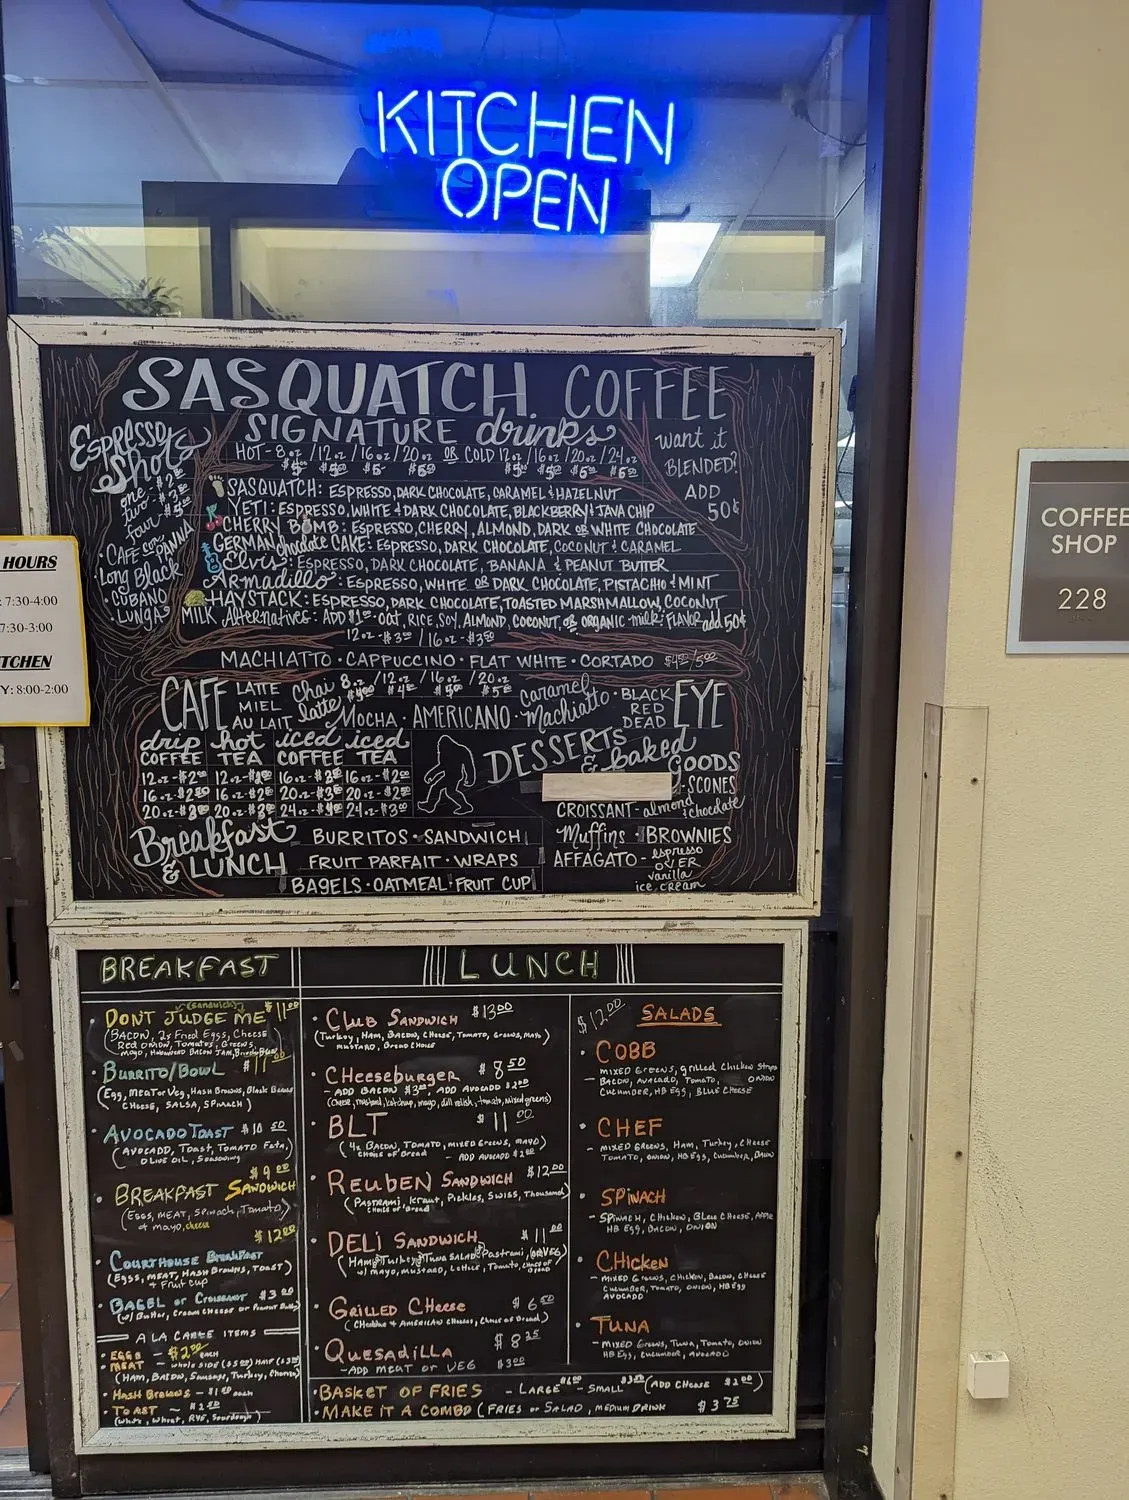 KITCHEN
OPEN
SASQUATCH COFFEE
SIGNATURE drinks
HOT - 8oz /12oz /16oz /20oz OR COLD 12oz /16oz /20oz /24oz
want it
BLENDED?
ADD
50¢
Espresso
Shots
one
two
four
· CAFE con PANNA
· Long Black
· CUBANO
· LUNGA
SASQUATCH: ESPRESSO, DARK CHOCOLATE, CARAMEL & HAZELNUT
YETI: ESPRESSO, WHITE & DARK CHOCOLATE, BLACKBERRY & JAVA CHIP
CHERRY BOMB: ESPRESSO, CHERRY, ALMOND, DARK OR WHITE CHOCOLATE
GERMAN chocolate CAKE: ESPRESSO, DARK CHOCOLATE, COCONUT & CARAMEL
Elvis: ESPRESSO, DARK CHOCOLATE, BANANA & PEANUT BUTTER
Armadillo: ESPRESSO, WHITE OR DARK CHOCOLATE, PISTACHIO & MINT
HAYSTACK: ESPRESSO, DARK CHOCOLATE, TOASTED MARSHMALLOW, COCONUT
MILK Alternatives: ADD $1.00 - OAT, RICE, SOY, ALMOND, COCONUT, OR ORGANIC milk; FLAVOR add 50¢
12oz - $3.00 /16oz - $3.50
MACHIATTO · CAPPUCCINO · FLAT WHITE · CORTADO
CAFE
LATTE
MIEL
AU LAIT
Chai
latte
8oz /12oz /16oz /20oz
MOCHA · AMERICANO · caramel Machiatto
· BLACK
RED
DEAD
EYE
drip COFFEE
hot TEA
iced COFFEE
iced TEA
12oz - $2.00 12oz 16oz 16oz - $2.00
16oz 16oz - $2.00 20oz - $3.50 20oz - $2.50
20oz 20oz 24oz 24oz - $3.00
DESSERTS
& baked
GOODS
- SCONES
CROISSANT - almond & chocolate
Muffins · BROWNIES
AFFAGATO - espresso
OVER
vanilla
ice cream
Breakfast
& LUNCH
BURRITOS · SANDWICH
FRUIT PARFAIT · WRAPS
BAGELS · OATMEAL · FRUIT CUP
HOURS
: 7:30-4:00
7:30-3:00
TCHEN
Y: 8:00-2:00
COFFEE
SHOP
228
BREAKFAST
(sandwich)
DON'T JUDGE ME $11.00
(BACON, 2x Fried Eggs, Cheese
Red Onion, Tomatoes, Greens,
mayo, Bacon Jam,
BURRITO/BOWL
(Egg, MEAT or Veg, HASH BROWNS, Black Beans
CHEESE, SALSA, SPINACH)
AVOCADO TOAST $10.50
(AVOCADO, Toast, TOMATO
OLIVE OIL,
$9.00
· BREAKFAST SANDWICH
(EGGS, MEAT, SPINACH, TOMATO,
& mayo, cheese
$12.00
· COURTHOUSE BREAKFAST
(EGGS, MEAT, HASH BROWNS, TOAST)
+ FRUIT CUP
· BAGEL or CROISSANT $3.00
(w/ Butter, CREAM CHEESE or Peanut Butter)
A LA CARTE ITEMS
· EGGS - $2.00 each
· MEAT - whole SIDE ($5.00) HALF
(HAM, BACON, SAUSAGE, Turkey,
· HASH BROWNS - each
· TOAST -
(White, Wheat, RYE, Sourdough)
LUNCH
· CLUB SANDWICH $13.00
(Turkey, HAM, BACON, CHEESE, TOMATO, GREENS, MAYO
MUSTARD, BREAD CHOICE
· CHEESEBURGER $8.50
- ADD BACON $3.00, ADD AVOCADO $2.00
(cheese, mustard, ketchup, mayo, dill relish, tomato, mixed greens)
· BLT $11.00
(4x BACON, TOMATO, MIXED GREENS, MAYO)
CHOICE of Bread - ADD AVOCADO $2.00
· REUBEN SANDWICH $12.00
(PASTRAMI, Kraut, PICKLES, SWISS, Thousand)
CHOICE of Bread
· DELI SANDWICH $11.00
(HAM, Turkey, TUNA SALAD, Pastrami, OR VEG)
w/ mayo, mustard, Lettuce, Tomato, CHOICE OF BREAD
· GRILLED CHEESE $6.50
& AMERICAN CHEESE, CHOICE of BREAD)
· QUESADILLA
- ADD MEAT or VEG $3.00
$12.00 SALADS
· COBB
MIXED GREENS, grilled Chicken Strips
- BACON, AVOCADO, TOMATO, ONION
CUCUMBER, HB EGG, BLUE CHEESE
· CHEF
- MIXED GREENS, HAM, Turkey, CHEESE
TOMATO, ONION, HB EGG, CUCUMBER, BACON
· SPINACH
- SPINACH, CHICKEN, BLEU CHEESE, APPLE
HB EGG, BACON, ONION
· CHICKEN
- MIXED GREENS, CHICKEN, BACON, CHEESE
CUCUMBER, TOMATO, ONION, HB EGG
AVOCADO
· TUNA
- MIXED GREENS, TUNA, TOMATO, ONION
HB EGG, CUCUMBER, AVOCADO
· BASKET OF FRIES - LARGE - SMALL (ADD CHEESE $2.00)
· MAKE IT A COMBO (FRIES or SALAD, MEDIUM DRINK $3.75